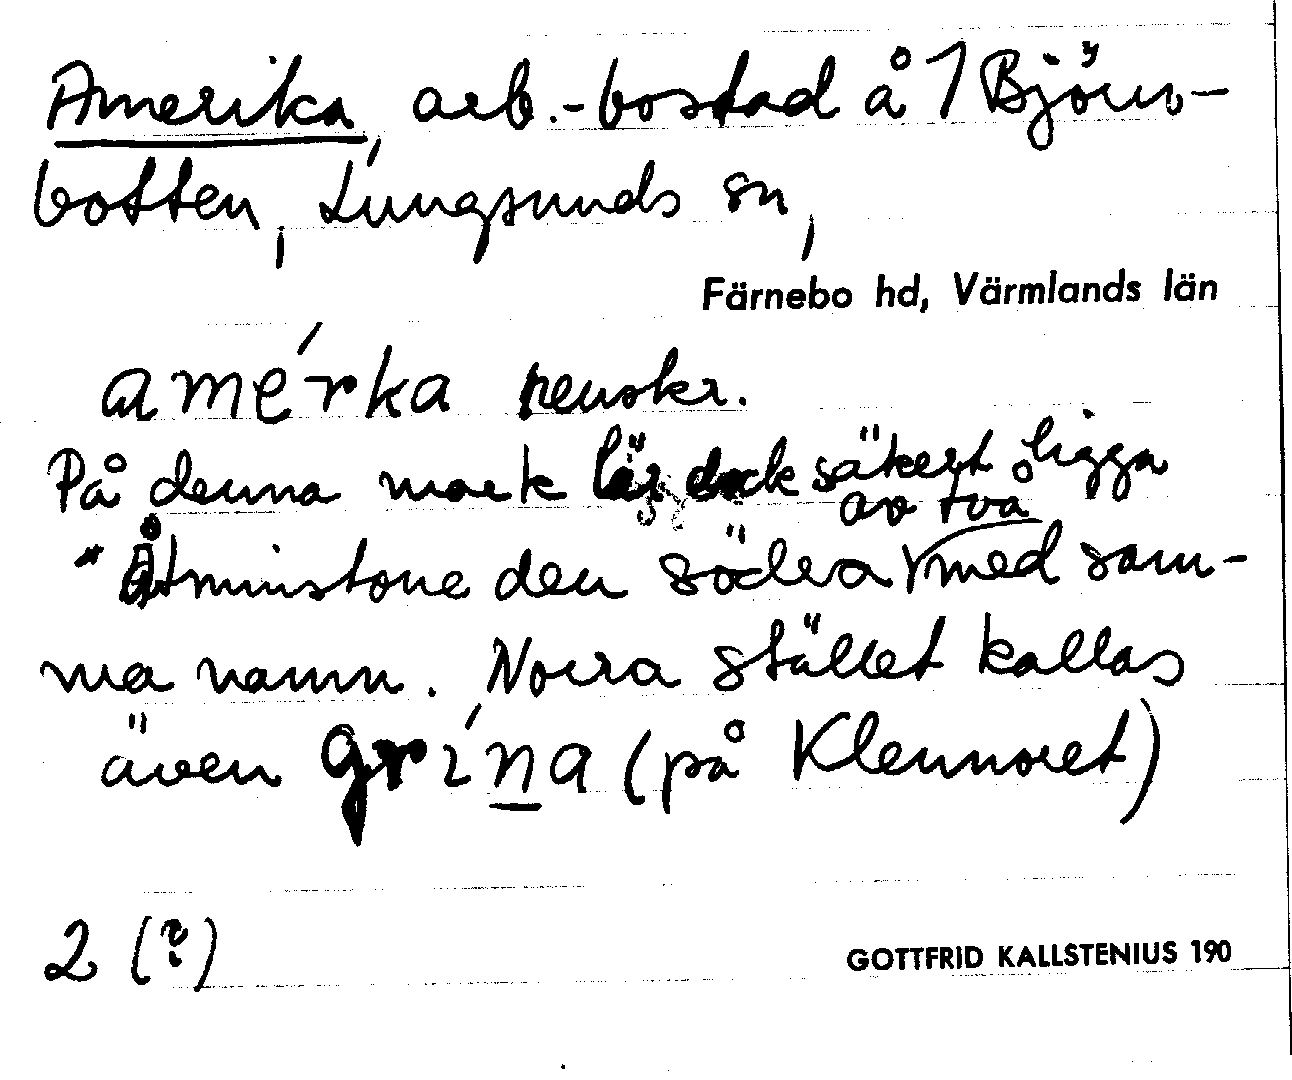 Amerika, arb.-bostad å 1 Björn-
botten, Lungsunds sn,
Färnebo hd, Värmlands län
amérka renskr.
På denna mark lär dock säkert ligga
"Åtminstone den södra av två med sam-
ma namn. Norra stället kallas
även grína (på Klennoret)
2 (?)
GOTTFRID KALLSTENIUS 190